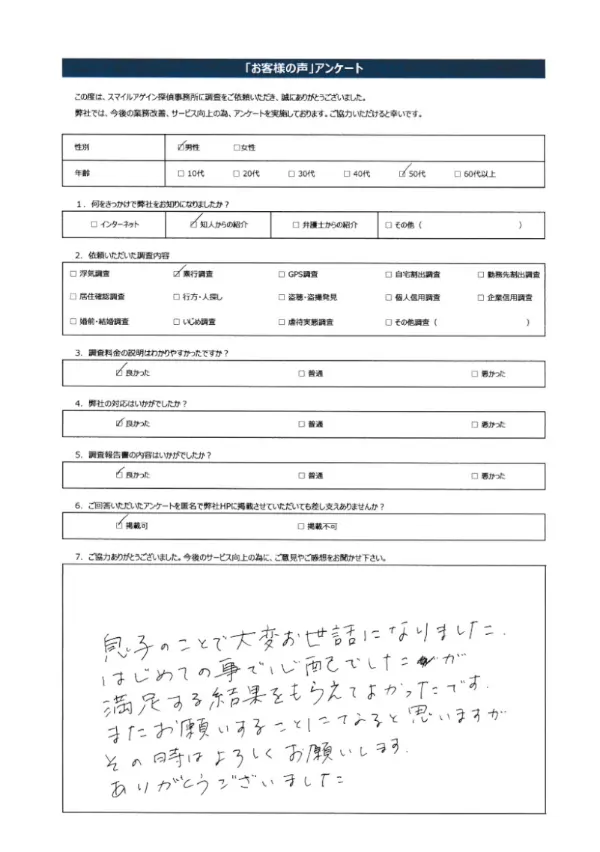 「お客様の声」アンケート
この度は、スマイルアゲイン探偵事務所に調査をご依頼いただき、誠にありがとうございました。
弊社では、今後の業務改善、サービス向上の為、アンケートを実施しております。ご協力いただけると幸いです。
性別 ☑男性 □女性
年齢 □ 10代 □ 20代 □ 30代 □ 40代 ☑ 50代 □ 60代以上
1．何をきっかけで弊社をお知りになりましたか？
□ インターネット ☑ 知人からの紹介 □ 弁護士からの紹介 □ その他（ ）
2．依頼いただいた調査内容
□ 浮気調査 ☑ 素行調査 □ GPS調査 □ 自宅割出調査 □ 勤務先割出調査
□ 居住確認調査 □ 行方・人探し □ 盗聴・盗撮発見 □ 個人信用調査 □ 企業信用調査
□ 婚前・結婚調査 □ いじめ調査 □ 虐待実態調査 □ その他調査（ ）
3．調査料金の説明はわかりやすかったですか？
☑ 良かった □ 普通 □ 悪かった
4．弊社の対応はいかがでしたか？
☑ 良かった □ 普通 □ 悪かった
5．調査報告書の内容はいかがでしたか？
☑ 良かった □ 普通 □ 悪かった
6．ご回答いただいたアンケートを匿名で弊社HPに掲載させていただいても差し支えありませんか？
☑ 掲載可 □ 掲載不可
7．ご協力ありがとうございました。今後のサービス向上の為に、ご意見やご感想をお聞かせ下さい。
息子のことで大変お世話になりました．
はじめての事で心配でしたが
満足する結果をもらえてよかったです．
またお願いすることにてなると思いますが
その時はよろしくお願いします．
ありがとうございました